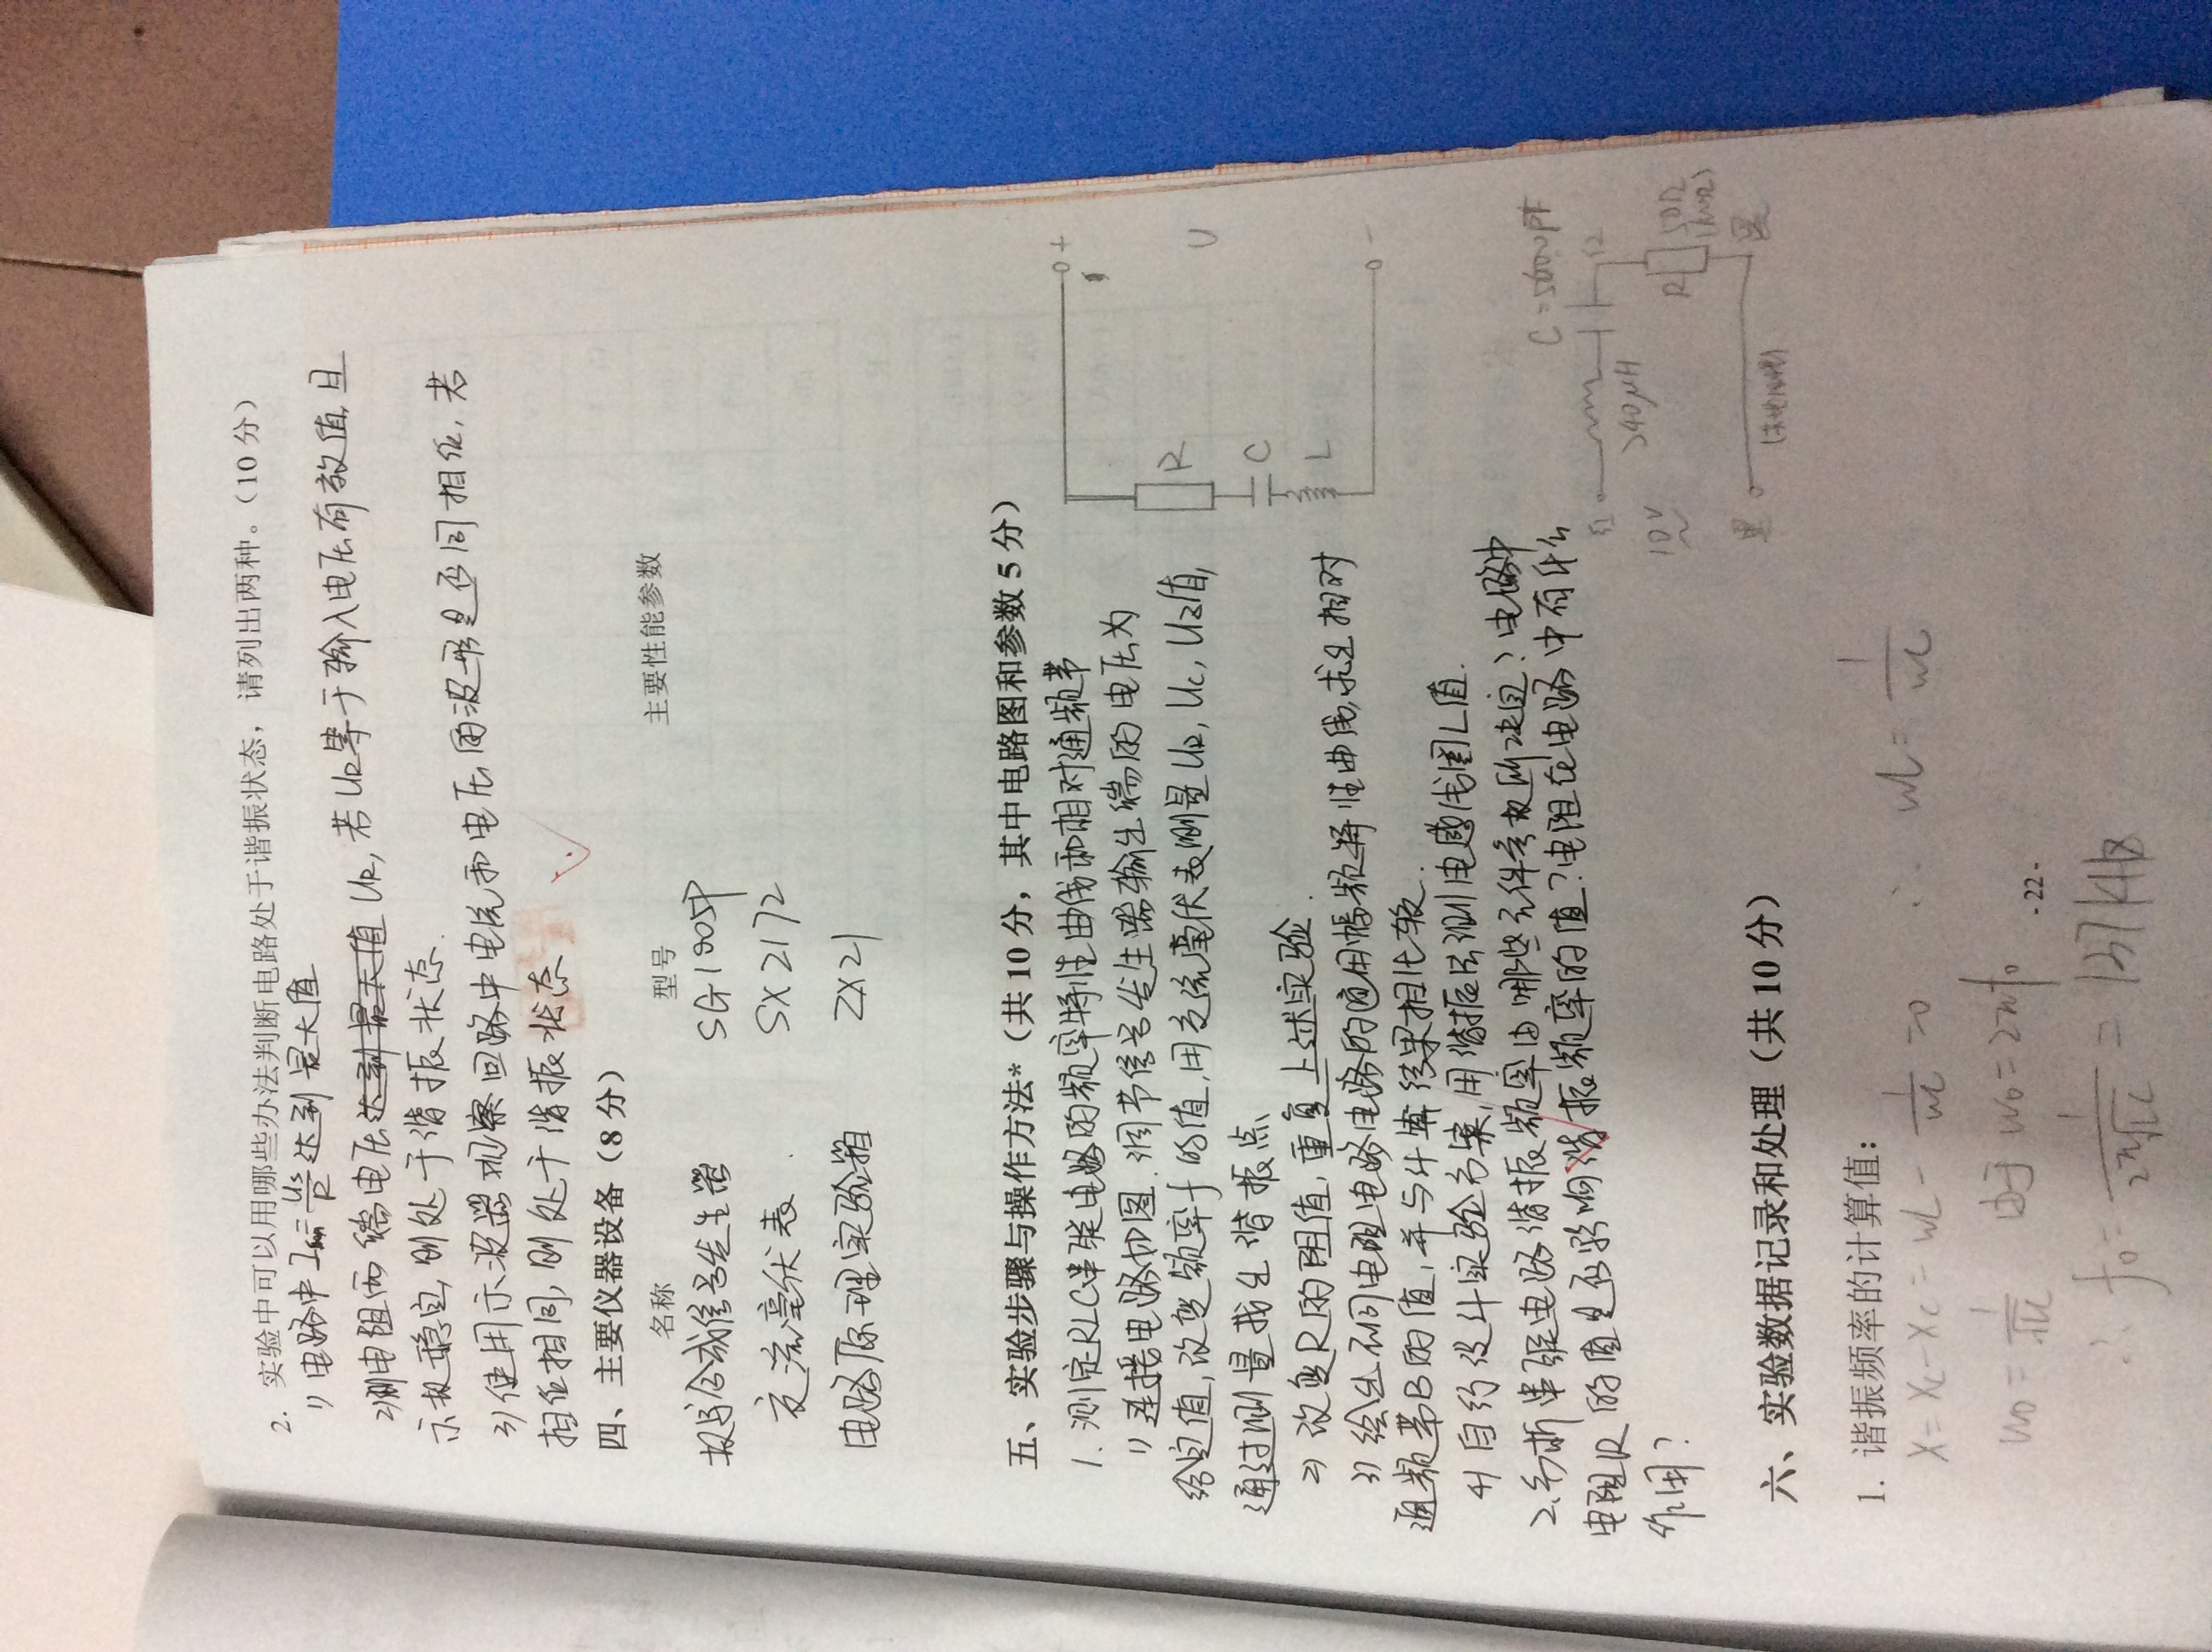 2. 实验中可以用哪些办法判断电路处于谐振状态，请列出两种。（10分）
1) 电路中 达到最大值
2)测电阻两端电压 UR, 若UR等于输入电压有效值,且
示数稳定,则处于谐振状态.
3)使用示波器观察回路中电流和电压的波形是否同相位,若
相位相同,则处于谐振状态
四、主要仪器设备（8分）
名称 型号 主要性能参数
数字合成信号发生器 SG1005P
交流毫伏表. SX2172
电路原理实验箱 ZX21
五、实验步骤与操作方法*（共10分，其中电路图和参数5分）
1. 测定RLC串联电路的频率特性曲线和相对通频带
1)连接电路如图.调节信号发生器输出端的电压为
给定值,改变频率f的值,用交流毫伏表测量UR, UC, 值,
通过测量找出谐振点
2) 改变R的阻值,重复上述实验.
3) 绘出不同电阻电路电路的通用幅频特性曲线,求出相对
通频带B的值,并与计算结果相比较.
4) 自行设计实验方案,用谐振法测电感线圈L值.
2.分析串联电路谐振频率由哪些元件参数所决定?电路中
电阻R的值是否影响谐振频率的值?电阻在电路中有什么
作用?
+
R
C
L
U
-
红
10V
黑
540μH
C=
红
R
50Ω
黑
六、实验数据记录和处理（共10分）
1. 谐振频率的计算值：
X = XL - XC = ωL - 1/ωC = 0 ∴ ωL = 1/ωC
ω0 = 1/√LC 由于 ω0 = 2πf0
-22-
∴ f0 = 1/2π√LC =